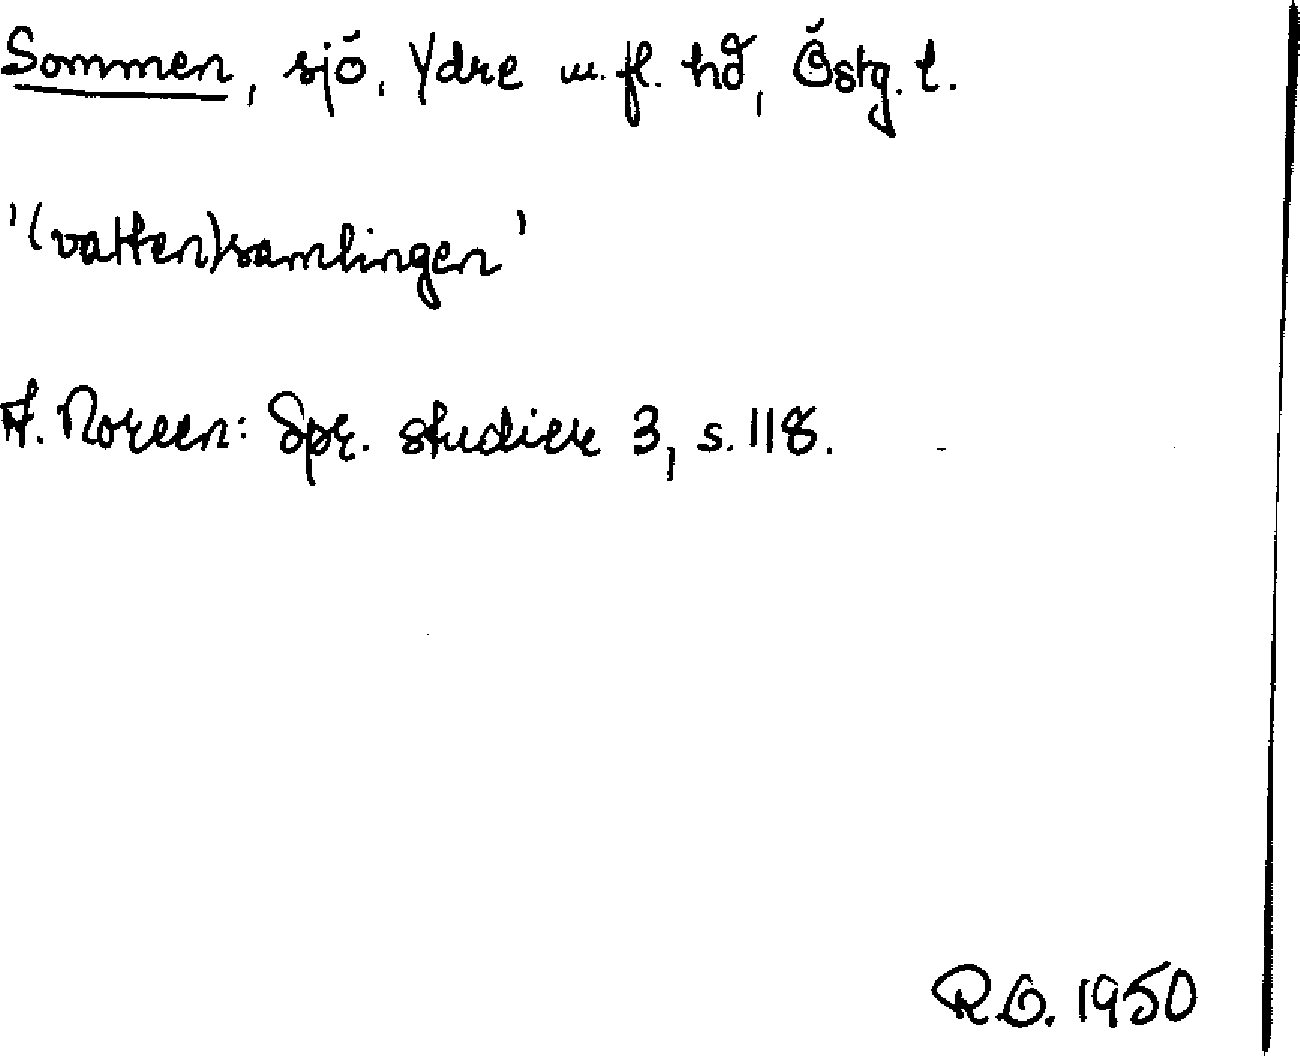 Sommen, sjö, Ydre m. fl. hd, Östg. l.
'(vatten)samlingen'
A. Noreen: Spr. studier 3, s. 118.
R.O. 1950